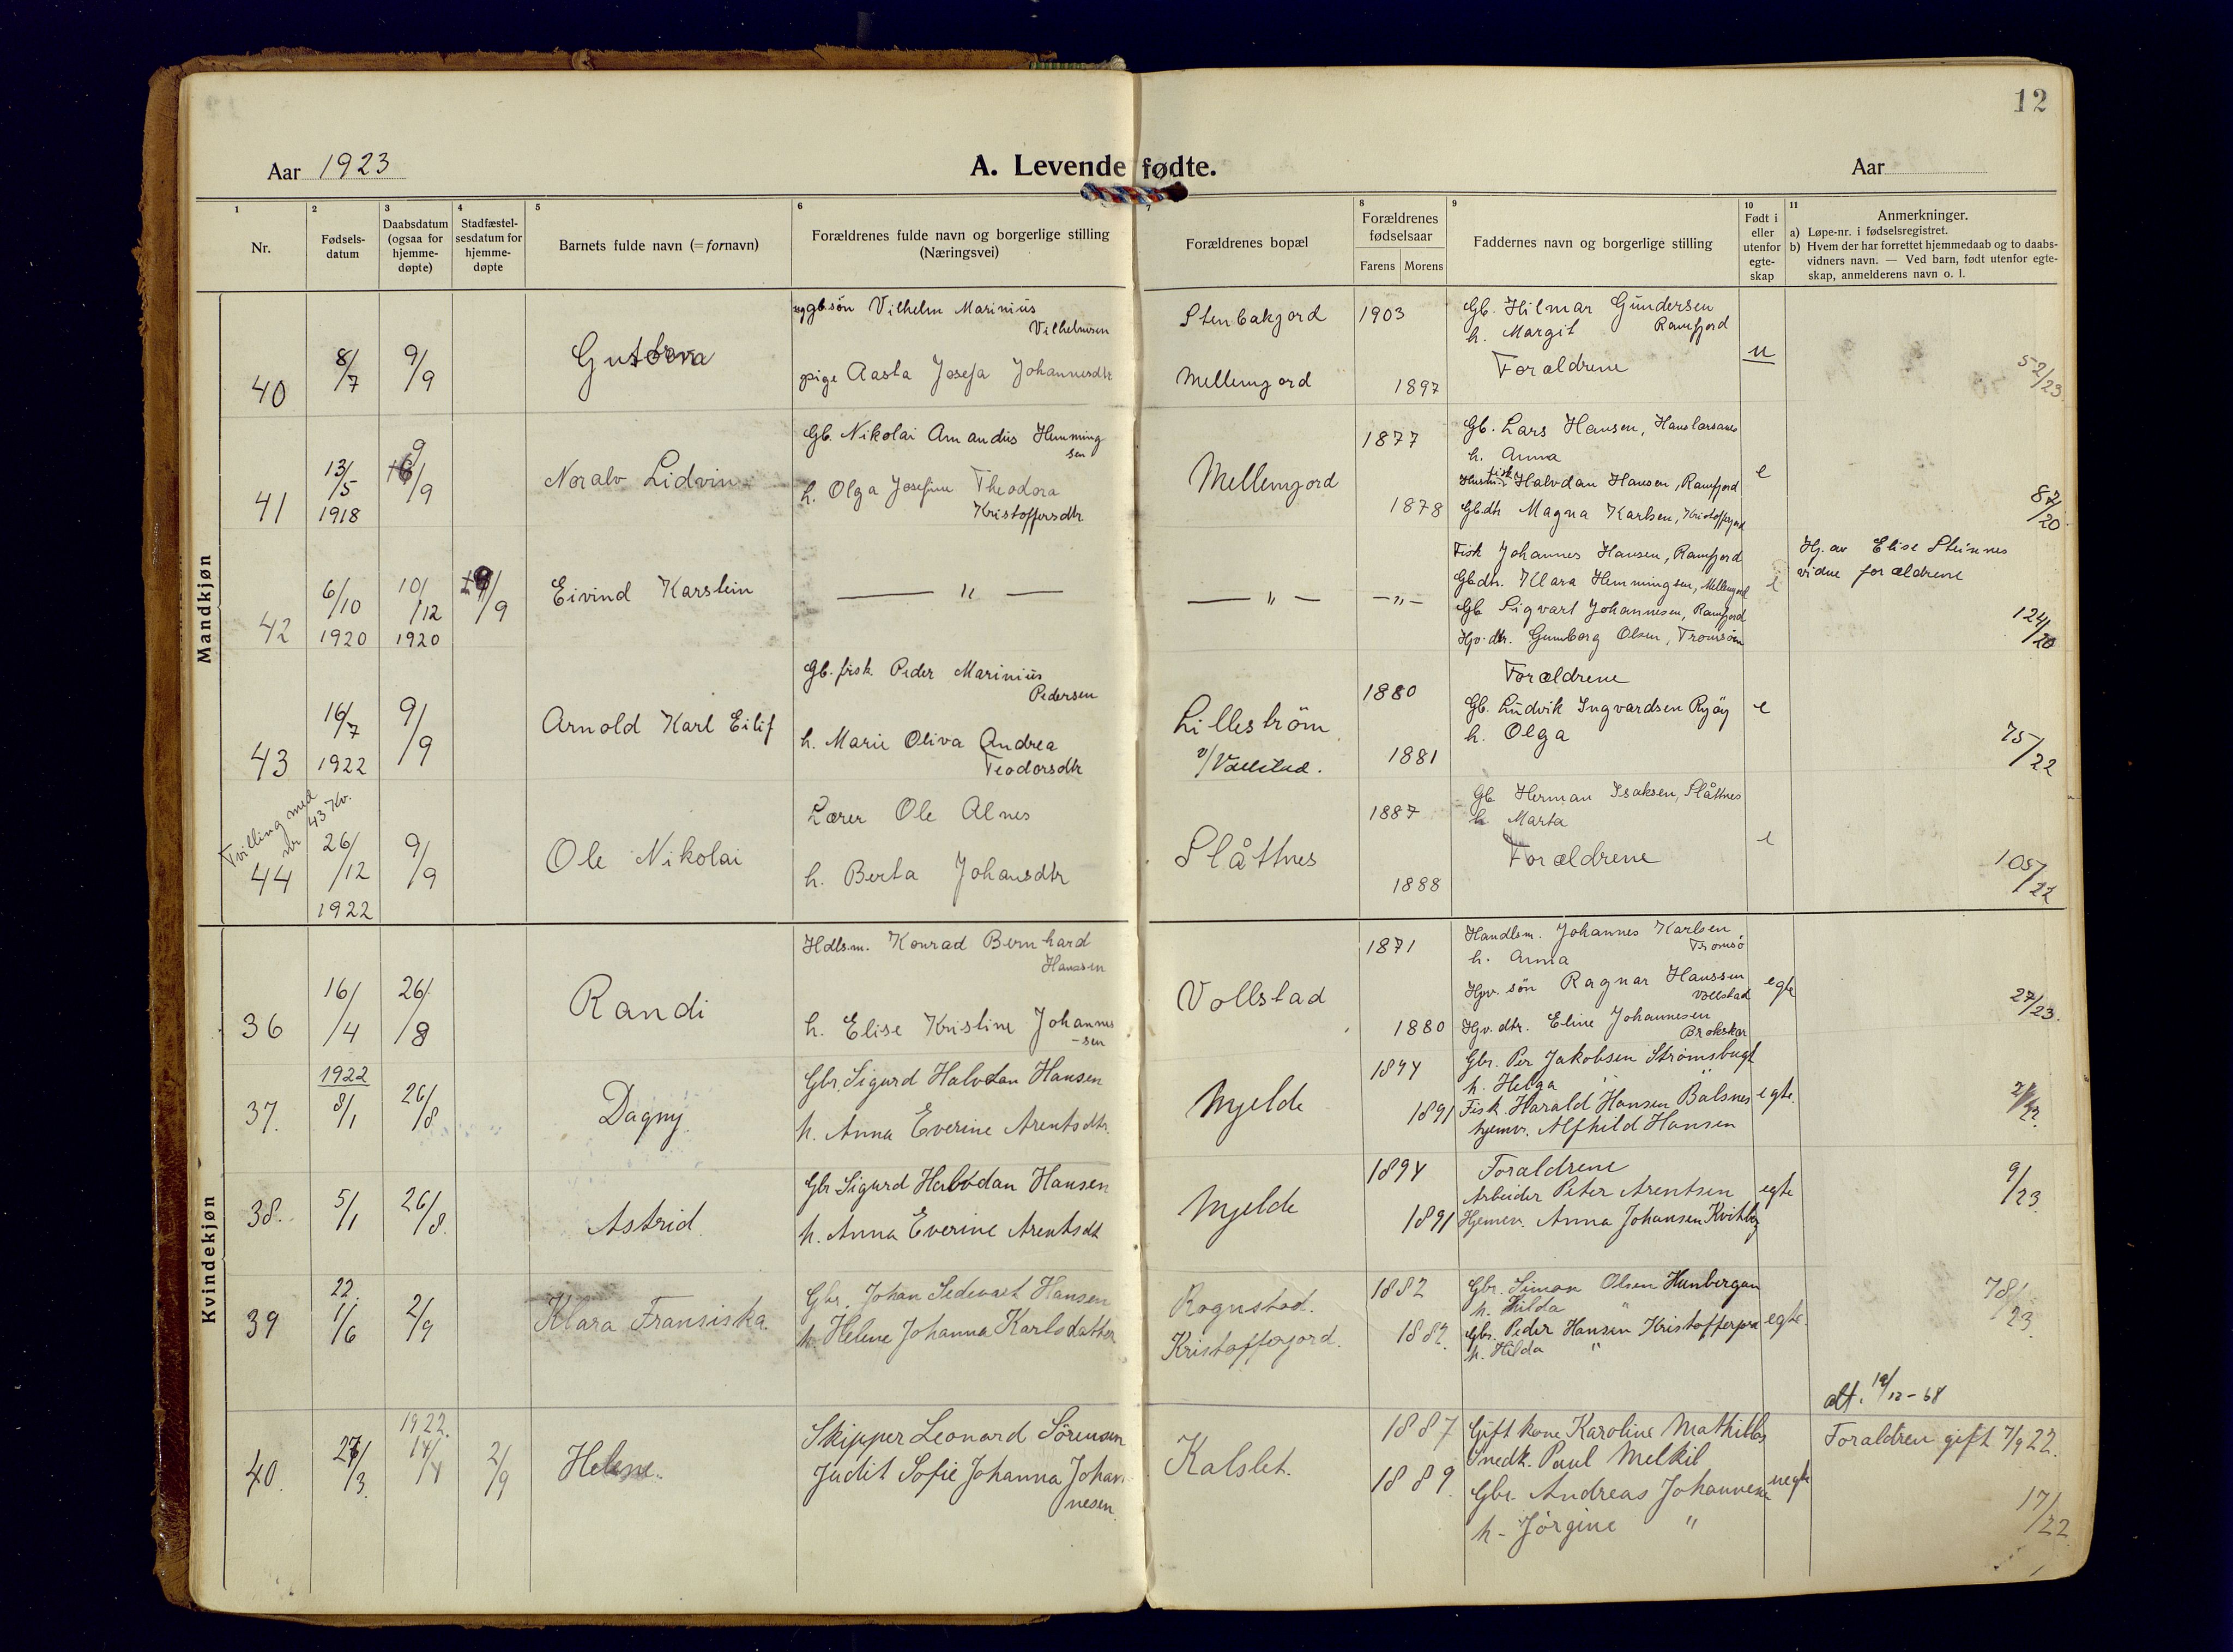 12
Aar 1923
A. Levende fødte.
Aar
1 2 3 4 5 6 7 8 9 10 11
Nr.
Fødsels-
datum
Daabsdatum
(ogsaa for
hjemme-
døpte)
Stadfæstel-
sesdatum for
hjemme-
døpte
Barnets fulde navn (=fornavn)
Forældrenes fulde navn og borgerlige stilling
(Næringsvei)
Forældrenes bopæl
Forældrenes
fødselsaar
Farens Morens
Faddernes navn og borgerlige stilling
Født i
eller
utenfor
egte-
skap
Anmerkninger.
a) Løpe-nr. i fødselsregistret.
b) Hvem der har forrettet hjemmedaab og to daabs-
vidners navn. — Ved barn, født utenfor egte-
skap, anmelderens navn o. l.
Mandkjøn
40
8/7
9/9
Gutorm
gbsön Vilhelm Marinius
Vilhelmsen
pige Aasta Josefa Johannesdtr
Stenbakjord
Mellemjord
1903
1897
Gb. Hilmar Gundersen
h. Margit Ramfjord
Forældrene
u
52/23
41
13/5
1918
9/9
Noralv Lidvin
Gb. Nikolai Amandus Hemming
sen
h. Olga Josefine Theodora
Kristoffersdtr
Mellemjord
1877
1878
Gb. Lars Hansen, Hanslarsanes
h. Anna
fisk Halvdan Hansen, Ramfjord
Gbdtr Magna Karlsen, Kristofferjord
e
82/20
42
6/10
1920
10/12
1920
9/9
Eivind Karstein
— " —
— " —
— " —
Fisk Johannes Hansen, Ramfjord
Gbdtr. Klara Hemmingsen, Mellemjord
Gb Sigvart Johannesen, Ramfjord
Hjv. dtr. Gunborg Olsen, Tromsøen
e
Hj. av Elise Steinnes
vidne forældrene
124/20
43
16/7
1922
9/9
Arnold Karl Eilif
Gb. fisk. Peder Marinius
Pedersen
h. Marie Oliva Andrea
Teodorsdtr
Lilleström
v/Vollstad.
1880
1881
Forældrene
Gb. Ludvik Ingvardsen Ryöy
h. Olga
e
75/22
Tvilling med
nr 43 Kv.
44
26/12
1922
9/9
Ole Nikolai
Lærer Ole Alnes
h. Berta Johansdtr
Slåttnes
1887
1888
Gb Herman Isaksen, Slåttnes
h. Marta
Forældrene
e
105/22
Kvindekjøn
36
16/4
26/8
Randi
Hdlsm. Konrad Bernhard
Hanssen
h. Elise Kristine Johannes
-sen
Vollstad
1871
1880
Handlsm. Johannes Karlsen
Tromsö
h. Anna
Hjv. søn Ragnar Hanssen
Vollstad
Hjv. dtr. Eline Johannesen
Brokskar
egte
27/23.
37.
1922
8/1
26/8
Dagny
Gbr. Sigurd Halvdan Hansen
h. Anna Everine Arentsdtr.
Mjelde
1894
1891
Gbr. Per Jakobsen Strømsbugt
h. Helga "
Fisk. Harald Hansen Balsnes
hjemv. Alfhild Hansen
egte.
38.
5/1
26/8.
Astrid
Gbr Sigurd Halvdan Hansen
h. Anna Everine Arentsdt
Mjelde
1894
1891
Forældrene
Arbeider Peter Arentsen
Hjemv. Anna Johansen Kvitberg
egte
9/23
39
22.
1/6
2/9
Klara Fransiska.
Gbr. Johan Sedevart Hansen
h. Helene Johanna Karlsdatter
Rognstad.
Kristofferjord.
1882
1882.
Gbr. Simon Olsen Hunbergan
h. Hilda "
Gbr. Peder Hansen Kristofferjord
h. Hilda "
egte.
78/23
40.
27/3.
1922.
14/4
2/9
Helene.
Skipper Leonard Sörensen
Judit Sofie Johanna Johan
nesen
Kalslet.
1887
1889
Gift kone Karoline Mathillas
Snedk. Paul Melkil
Gbr. Andreas Johannesen
h - Jörgine "
uegte
att. 19/12-68
Foraldren gift 7/9 22.
17/22